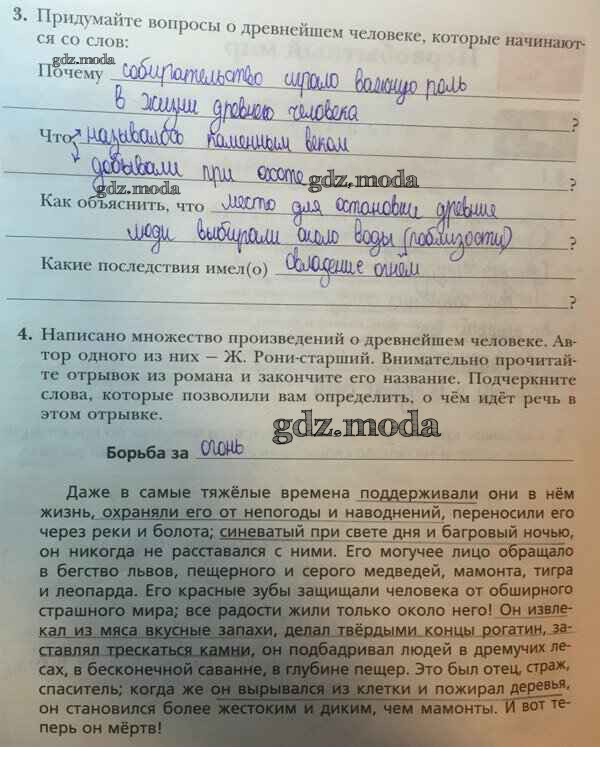 3. Придумайте вопросы о древнейшем человеке, которые начинают-
ся со слов:
gdz.moda
Почему собирательство играло важную роль
в жизни древнего человека ?
Что называлось каменным веком
добывали при охоте ?
gdz.moda gdz.moda
Как объяснить, что место для остановки древние
люди выбирали около воды (поблизости) ?
Какие последствия имел(о) овладение огнём
?
4. Написано множество произведений о древнейшем человеке. Ав-
тор одного из них – Ж. Рони-старший. Внимательно прочитай-
те отрывок из романа и закончите его название. Подчеркните
слова, которые позволили вам определить, о чём идёт речь в
этом отрывке.
gdz.moda
Борьба за огонь
Даже в самые тяжёлые времена поддерживали они в нём
жизнь, охраняли его от непогоды и наводнений, переносили его
через реки и болота; синеватый при свете дня и багровый ночью,
он никогда не расставался с ними. Его могучее лицо обращало
в бегство львов, пещерного и серого медведей, мамонта, тигра
и леопарда. Его красные зубы защищали человека от обширного
страшного мира; все радости жили только около него! Он извле-
кал из мяса вкусные запахи, делал твёрдыми концы рогатин, за-
ставлял трескаться камни, он подбадривал людей в дремучих ле-
сах, в бесконечной саванне, в глубине пещер. Это был отец, страж,
спаситель; когда же он вырывался из клетки и пожирал деревья,
он становился более жестоким и диким, чем мамонты. И вот те-
перь он мёртв!